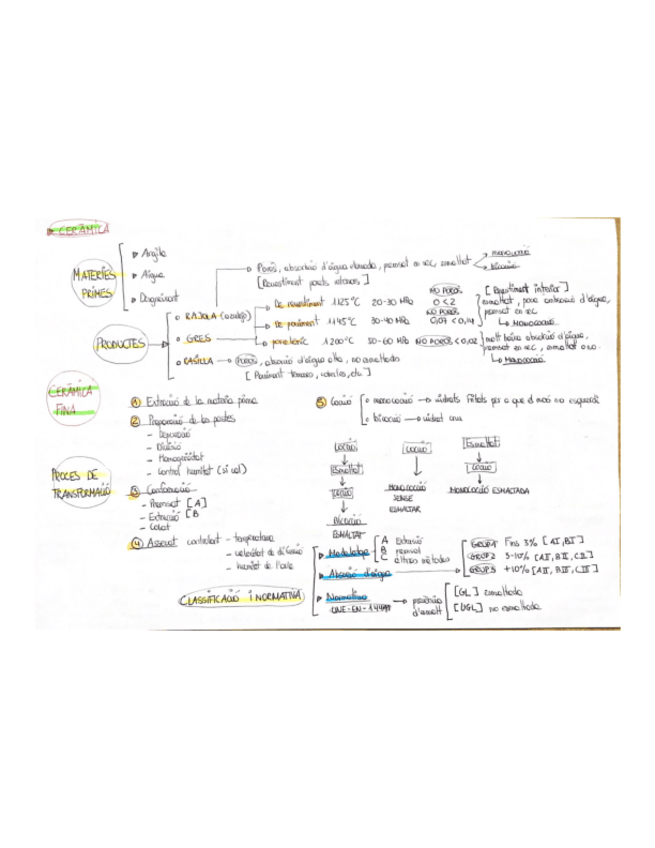 CERÀMICA
MATERIES PRIMES
Argila
Aigua
Desgreixant
Porós, absorció d'aigua elevada, premsat en sec, esmaltat
monococció
bicocció
[Revestiment parets interiors]
PRODUCTES
RAJOLA
GRES
De revestiment 1125°C 20-30 MPa NO POROS 0 < 2
[Revestiment interior]
esmaltat, poca absorció d'aigua, premsat en sec
MONOCOCCIÓ
De paviment 1145°C 30-40 MPa NO POROS 0,07 < 0,14
porcelànic 1200°C 50-60 MPa NO POROS < 0,02
molt baixa absorció d'aigua, premsat en sec, esmaltat o no.
MONOCOCCIÓ
RASILLA
POROS, absorció d'aigua alta, no esmaltada
[Paviment terrasses, etc]
CERÀMICA FINA
PROCES DE TRANSFORMACIÓ
1 Extracció de la matèria prima
2 Preparació de les pastes
- Depuració
- Divisió
- Homogeneïtat
- Control humitat (si cal)
3 Conformació
- Premsat [A]
- Extrusió [B
- Colat
4 Assecat controlant - temperatura
- velocitat de difusió
- humitat de l'aire
5 Cocció
monococció
bicocció → vidrat cru
COCCIÓ
Esmaltat
COCCIÓ
BICOCCIÓ
ESMALTAT
COCCIÓ
MONOCOCCIÓ SENSE ESMALTAR
Esmaltat
COCCIÓ
MONOCOCCIÓ ESMALTADA
CLASSIFICACIÓ I NORMATIVA
Modelatge
A Extrusió
B premsat
C altres mètodes
Absorció d'aigua
GRUP 1 Fins 3% [AI, BI]
GRUP 2 3-10% [AII, BII, CII]
GRUP 3 +10% [AIII, BIII, CIII]
Normativa
UNE-EN-14411
presència d'esmalt
[GL] esmaltada
[UGL] no esmaltada